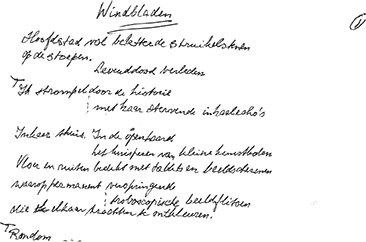 Windbladen
Hoofdstad vol beletterde struikelstenen
op de stoepen.
Levenddood verleden
Ik strompel door de historie
met haar stervende
Inkeer thuis. In de open haard
het knisperen van kleine houtbolen
Vloer en ruiten bedekt met tablets en beeldschermen
waarop permanent verspringende
stroboscopische beeldflitsen
die elkaar trachten te onthleuren.
Rondom